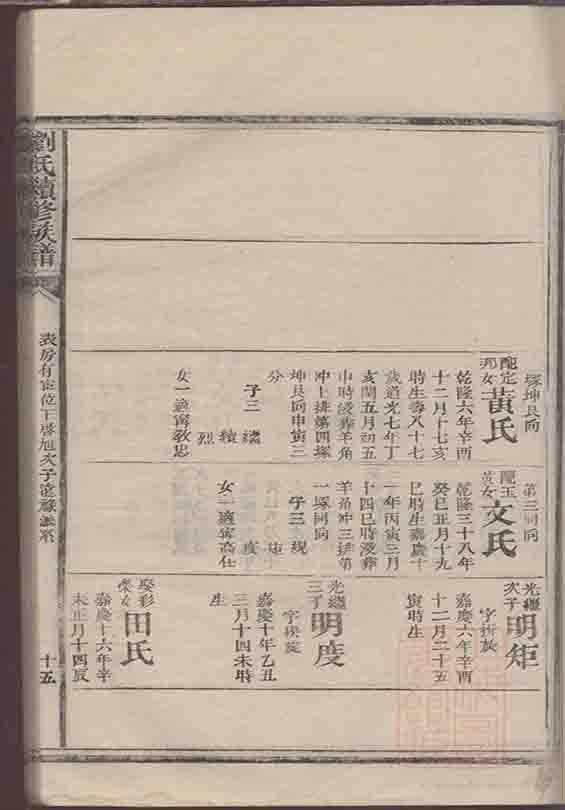 塚坤艮向
配定
邦女
黃氏
乾隆六年辛酉
十二月十七亥
時生壽八十七
歲道光七年丁
亥閏五月初五
申時没葬羊角
冲上排第四塚
坤艮向申寅三
分
子三 續
續
烈
女一適甯敦忠
第三同向
配玉
黃女
文氏
乾隆三十八年
癸巳正月十九
巳時生嘉慶十
一年丙寅三月
十四巳時没葬
羊角冲三排第
一塚同向
子三 規
矩
度
女一適甯高仕
光繼
次子
明矩
字
嘉慶六年辛酉
十二月二十五
寅時生
光繼
三子
明度
字
嘉慶十年乙丑
三月十四未時
生
娶彩
榮女
田氏
嘉慶十六年辛
未正月十四辰
劉氏續修族譜
十五